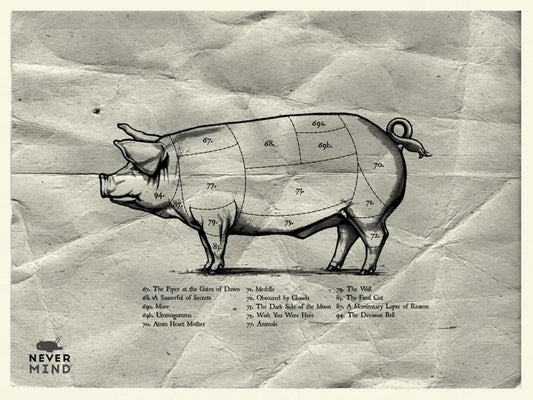 69a.
67.
68.
69b.
70.
77.
73.
94.
87.
71.
79.
75.
72.
83.
67. The Piper at the Gates of Dawn
68. A Saucerful of Secrets
69a. More
69b. Ummagumma
70. Atom Heart Mother
71. Meddle
72. Obscured by Clouds
73. The Dark Side of the Moon
75. Wish You Were Here
77. Animals
79. The Wall
83. The Final Cut
87. A Momentary Lapse of Reason
94. The Division Bell
NEVER
MIND